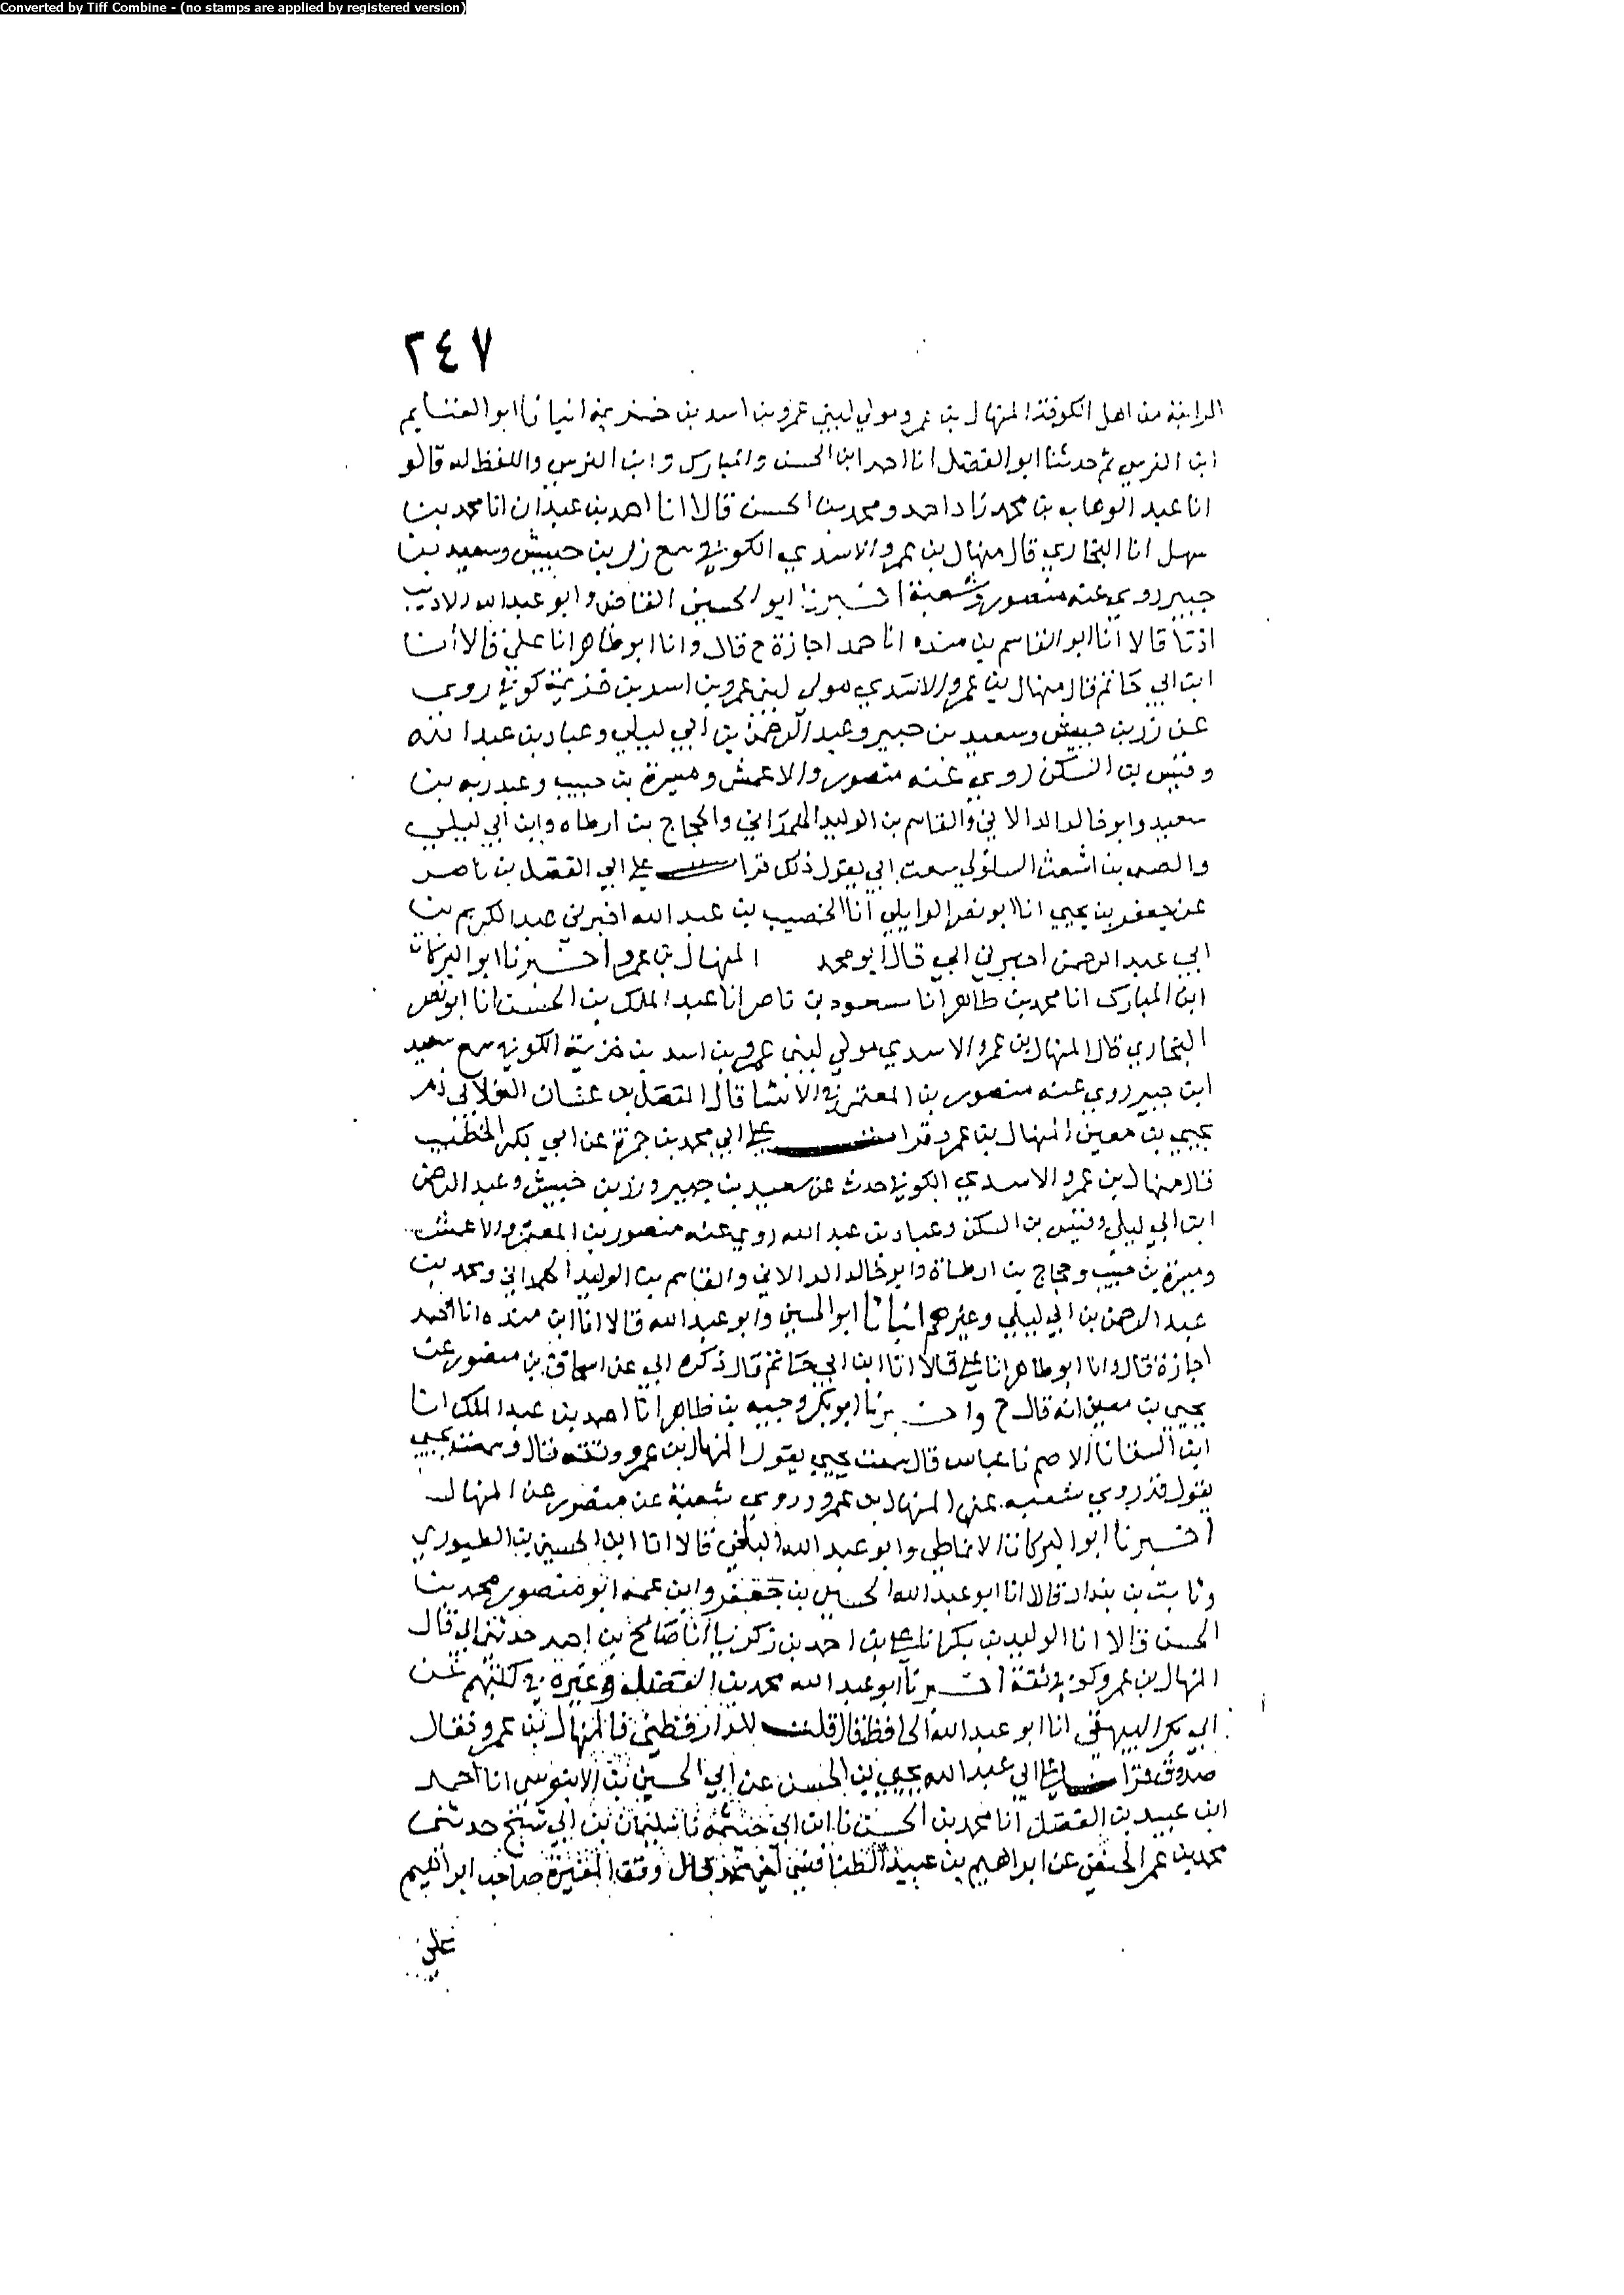 Converted by Tiff Combine - (no stamps are applied by registered version)
٢٤٧
الرابعة من اهل الكوفة المنهال بن عمرو مولي لبني عمرو بن اسد بن خزيمة انبانا ابو الغنايم
ابن النرسي ثم حدثنا ابو الفضل انا احمد ابن الحسن والمبارك وابن النرسي واللفظ له قالو
انا عبد الوهاب بن محمد زاد احمد ومحمد بن الحسن قالا انا احمد بن عبدان انا محمد بن
سهل انا البخاري قال منهال بن عمرو الاسدي الكوفي سمع زر بن حبيش وسعيد بن
جبير روي عنه منصور وشعبة اخبرنا ابو الحسين القاضي وابو عبد الله الاديب
اذنا قالا انا ابو القاسم بن منده انا حمد اجازة ح قال وانا ابو طاهر انا علي قالا أنا
ابن ابي حاتم قال منهال بن عمرو الاسدي مولي لبني عمرو بن اسد بن خزيمة كوفي روي
عن زر بن حبيش وسعيد بن جبير وعبد الرحمن بن ابي ليلي وعباد بن عبد الله
وقيس بن السكن روي عنه منصور والاعمش وميسرة بن حبيب وعبد ربه بن
سعيد وابو خالد الدالاني والقاسم بن الوليد الهمداني والحجاج بن ارطاه وابن أبي ليلي
والصـ بن اشعث السلولي سمعت ابي يقول ذلك قرات علي ابي الفضل بن ناصر
عن جعفر بن يحيي انا ابو نصر الوايلي أنا الخصيب بن عبد الله اخبرني عبد الكريم بن
ابي عبد الرحمن اخبرني ابي قال ابو محمد المنهال بن عمرو اخبرنا ابو البركات
ابن المبارك انا محمد بن طاهر انا مسعود بن ناصر انا عبد الملك بن الحسن انا ابو نصر
البخاري قال المنهال بن عمرو الاسدي مولي لبني عمرو بن اسد بن خزيمة الكوفي سمع سعيد
ابن جبير روي عنه منصور بن المعتمر في الانبيا قال المفضل بن غسان الغلابي ذم
يحيي بن معين المنهال بن عمرو قرات علي ابي محمد بن حمزة عن ابي بكر الخطيب
قال منهال بن عمرو الاسدي الكوفي حدث عن سعيد بن جبير وزر بن حبيش وعبد الرحمن
ابن ابي ليلي وقيس بن السكن وعباد بن عبد الله روي عنه منصور بن المعتمر والاعمش
وميسرة بن حبيب وحجاج بن ارطاة وابو خالد الدالاني والقاسم بن الوليد الهمداني ومحمد بن
عبد الرحمن بن ابي ليلي وغيرهم انبانا ابو الحسين وابو عبد الله قالا انا ابن منده انا حمد
اجازة قال وانا ابو طاهر انا علي قالا انا ابن ابي حاتم قال ذكره ابي عن اسحاق بن منصور عن
يحيي بن معين انه قال ح واخبرنا ابو بكر وجيه بن طاهر انا احمد بن عبد الملك انا
ابن السقا نا الاصم نا عباس قال سمعت يحيي يقول المنهال بن عمرو ثقه قال وسمعت يحيي
يقول قد روي شعبه عن المنهال بن عمرو وروي شعبة عن منصور عن المنهال
اخبرنا ابو البركات الانماطي وابو عبد الله البلخي قالا انا ابن الحسين بن الطيوري
وثابت بن بندار قالا انا ابو عبد الله الحسين بن جعفر وابن عمه ابو منصور محمد بن
الحسن قالا انا الوليد بن بكر انا علي بن احمد بن زكريا أنا صالح بن احمد حدثني ابي قال
المنهال بن عمرو كوفي ثقة اخبرنا ابو عبد الله محمد بن الفضل وغيره في كتبهم عن
ابي بكر البيهقي انا ابو عبد الله الحافظ قال قلت للدارقطني فالمنهال بن عمرو فقال
صدوق قرات علي ابي عبد الله يحيي بن الحسن عن أبي الحسين بن الابنوسي انا احمد
ابن عبيد بن الفضل انا محمد بن الحسن نا ابن ابي خيثمه نا سليمان بن ابي شيخ حدثني
محمد بن عمر الحنفي عن ابراهيم بن عبيد الطنافسي قال وقف المغيرة صاحب ابراهيم
علي